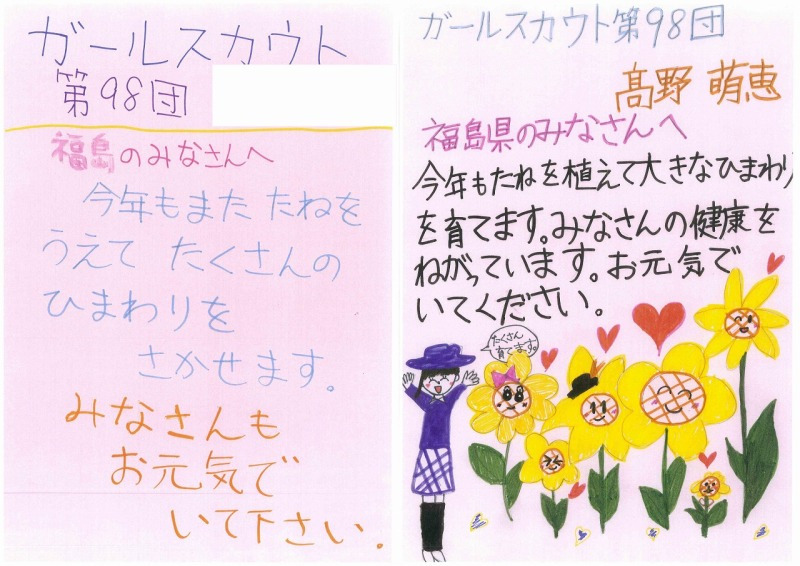 ガールスカウト
第98団
福島のみなさんへ
今年もまた たねを
うえて たくさんの
ひまわりを
さかせます。
みなさんも
お元気で
いて下さい。
ガールスカウト第98団
髙野 萌恵
福島県のみなさんへ
今年もたねを植えて大きなひまわり
を育てます。みなさんの健康を
ねがっています。お元気で
いてください。
たくさん
育てます。